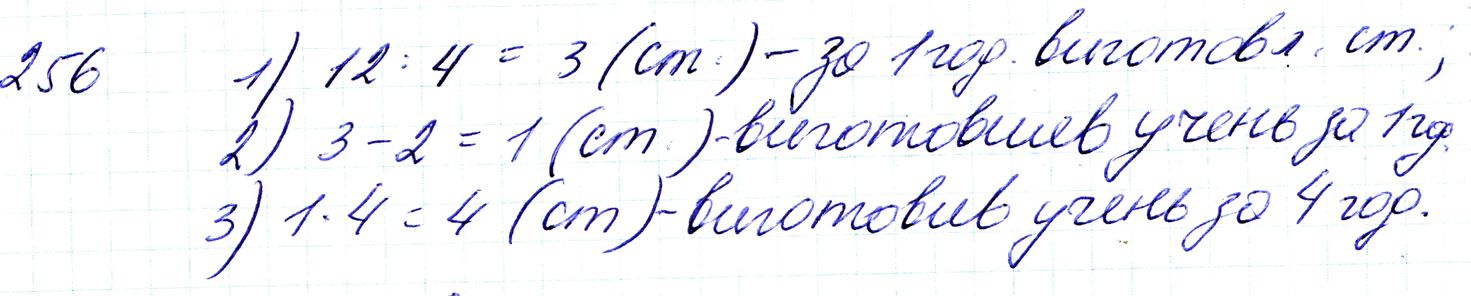 256 1) 12 : 4 = 3 (ст.) - за 1 год. виготовл. ст.;
2) 3 - 2 = 1 (ст.) - виготовив учень за 1 год.
3) 1 · 4 = 4 (ст) - виготовив учень за 4 год.